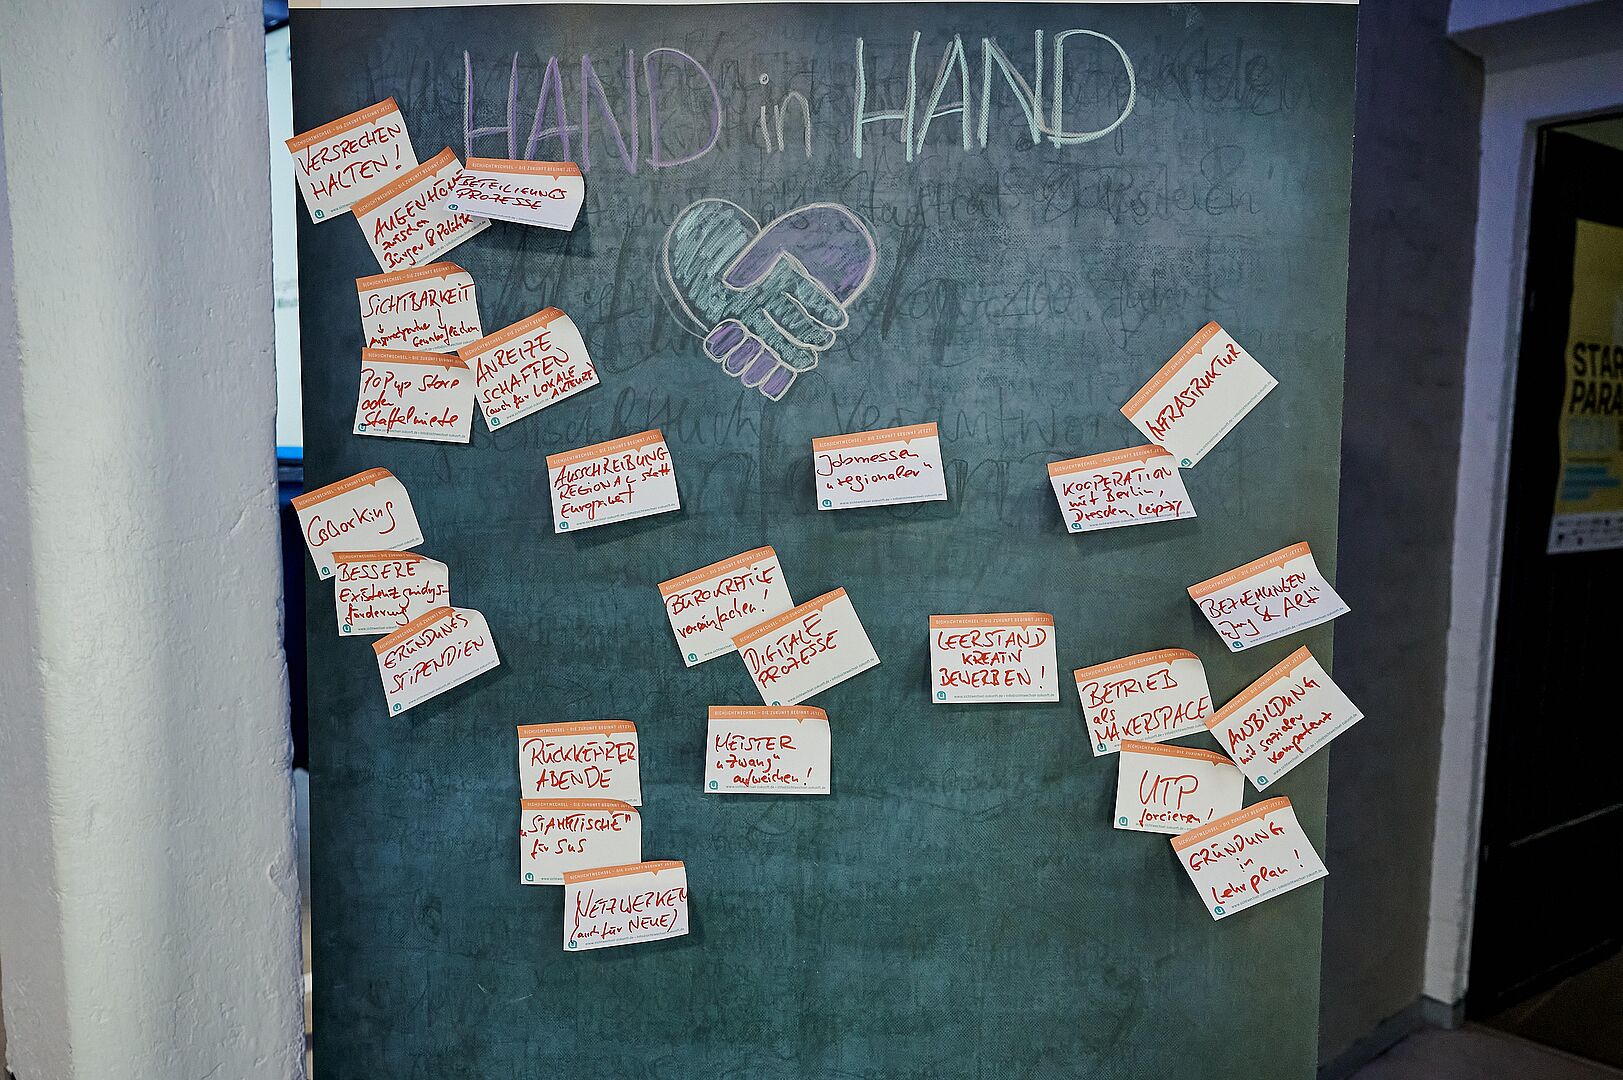 HAND in HAND
SICHLICHTWECHSEL – DIE ZUKUNFT BEGINNT JETZT!
VERSPRECHEN
HALTEN!
AUGENHÖHE
zwischen
Bürger & Politik
BETEILIGUNGS
PROZESSE
SICHTBARKEIT
Ansprechpartner
PopUp Store
oder
Staffelmiete
ANREIZE
SCHAFFEN
(auch für LOKALE
AKTEURE
INFRASTRUKTUR
AUSSCHREIBUNG
REGIONAL statt
Europaweit
Jobmessen
"regionaler"
KOOPERATION
mit Berlin,
Dresden, Leipzig
CoWorking
BESSERE
Existenzgründgs-
förderung
GRÜNDUNGS
STIPENDIEN
BÜROKRATIE
vereinfachen!
DIGITALE
PROZESSE
LEERSTAND
KREATIV
BEWERBEN!
BEZIEHUNGEN
"Jung & Alt"
BETRIEB
als
MAKERSPACE
AUSBILDUNG
mit sozialer
Kompetenz
RÜCKKEHRER
ABENDE
MEISTER
"zwang"
aufweichen!
UTP
forcieren!
"STAMMTISCHE"
für SuS
GRÜNDUNG
in
Lehrplan!
NETZWERKEN
(auch für NEUE)
STAR
PARA